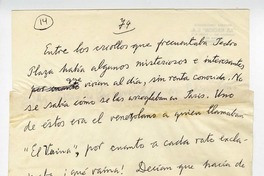 14
79
Entre los criollos que frecuentaba Pedro
Plaza había algunos misteriosos e interesantes
que vivían al día, sin renta conocida. No
se sabía cómo se las arreglaban en París. Uno
de éstos era el venezolano a quien llamaban
"El Vaina", por cuanto a cada rato excla-
maba: ¡qué vaina! Decían que hacía de